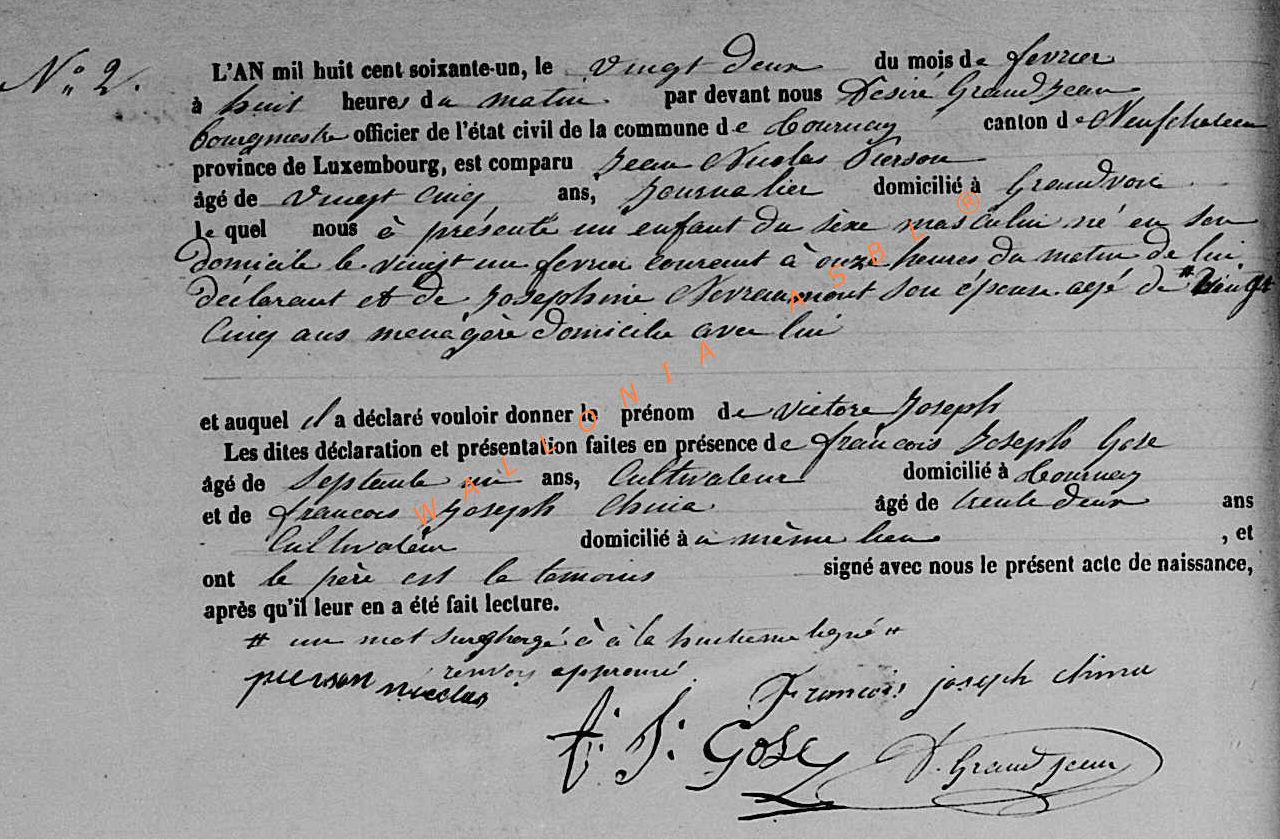 N° 2.
L'AN mil huit cent soixante-un, le vingt deux du mois de fevrier
à huit heures du matin par devant nous Désiré Grandjean
bourgmestre officier de l'état civil de la commune de Tournay canton de Neufchateau
province de Luxembourg, est comparu Jean Nicolas Pierson
âgé de vingt cinq ans, Journalier domicilié à Grandvoir
le quel nous à présenté un enfant du sèxe masculin né en son
domicile le vingt un fevrier courant à onze heures du matin de lui
déclarant et de Josephine Nevraumont son épouse agé de # vingt
Cinq ans menagère domicilié avec lui
et auquel il a déclaré vouloir donner le prénom de Victore Joseph
Les dites déclaration et présentation faites en présence de françois Joseph Gose
âgé de Septante un ans, Cultivateur domicilié à Tournay
et de francois Joseph China âgé de trente deux ans
Cultivateur domicilié à à même lieu , et
ont le père est le temoins signé avec nous le présent acte de naissance,
après qu'il leur en a été fait lecture.
# un mot surghargé à à la huitieme ligne #
renvoi approuvé
pierson nicolas
François joseph china
f. J. Gose
D. Grandjean
WALLONIA ASBL ®